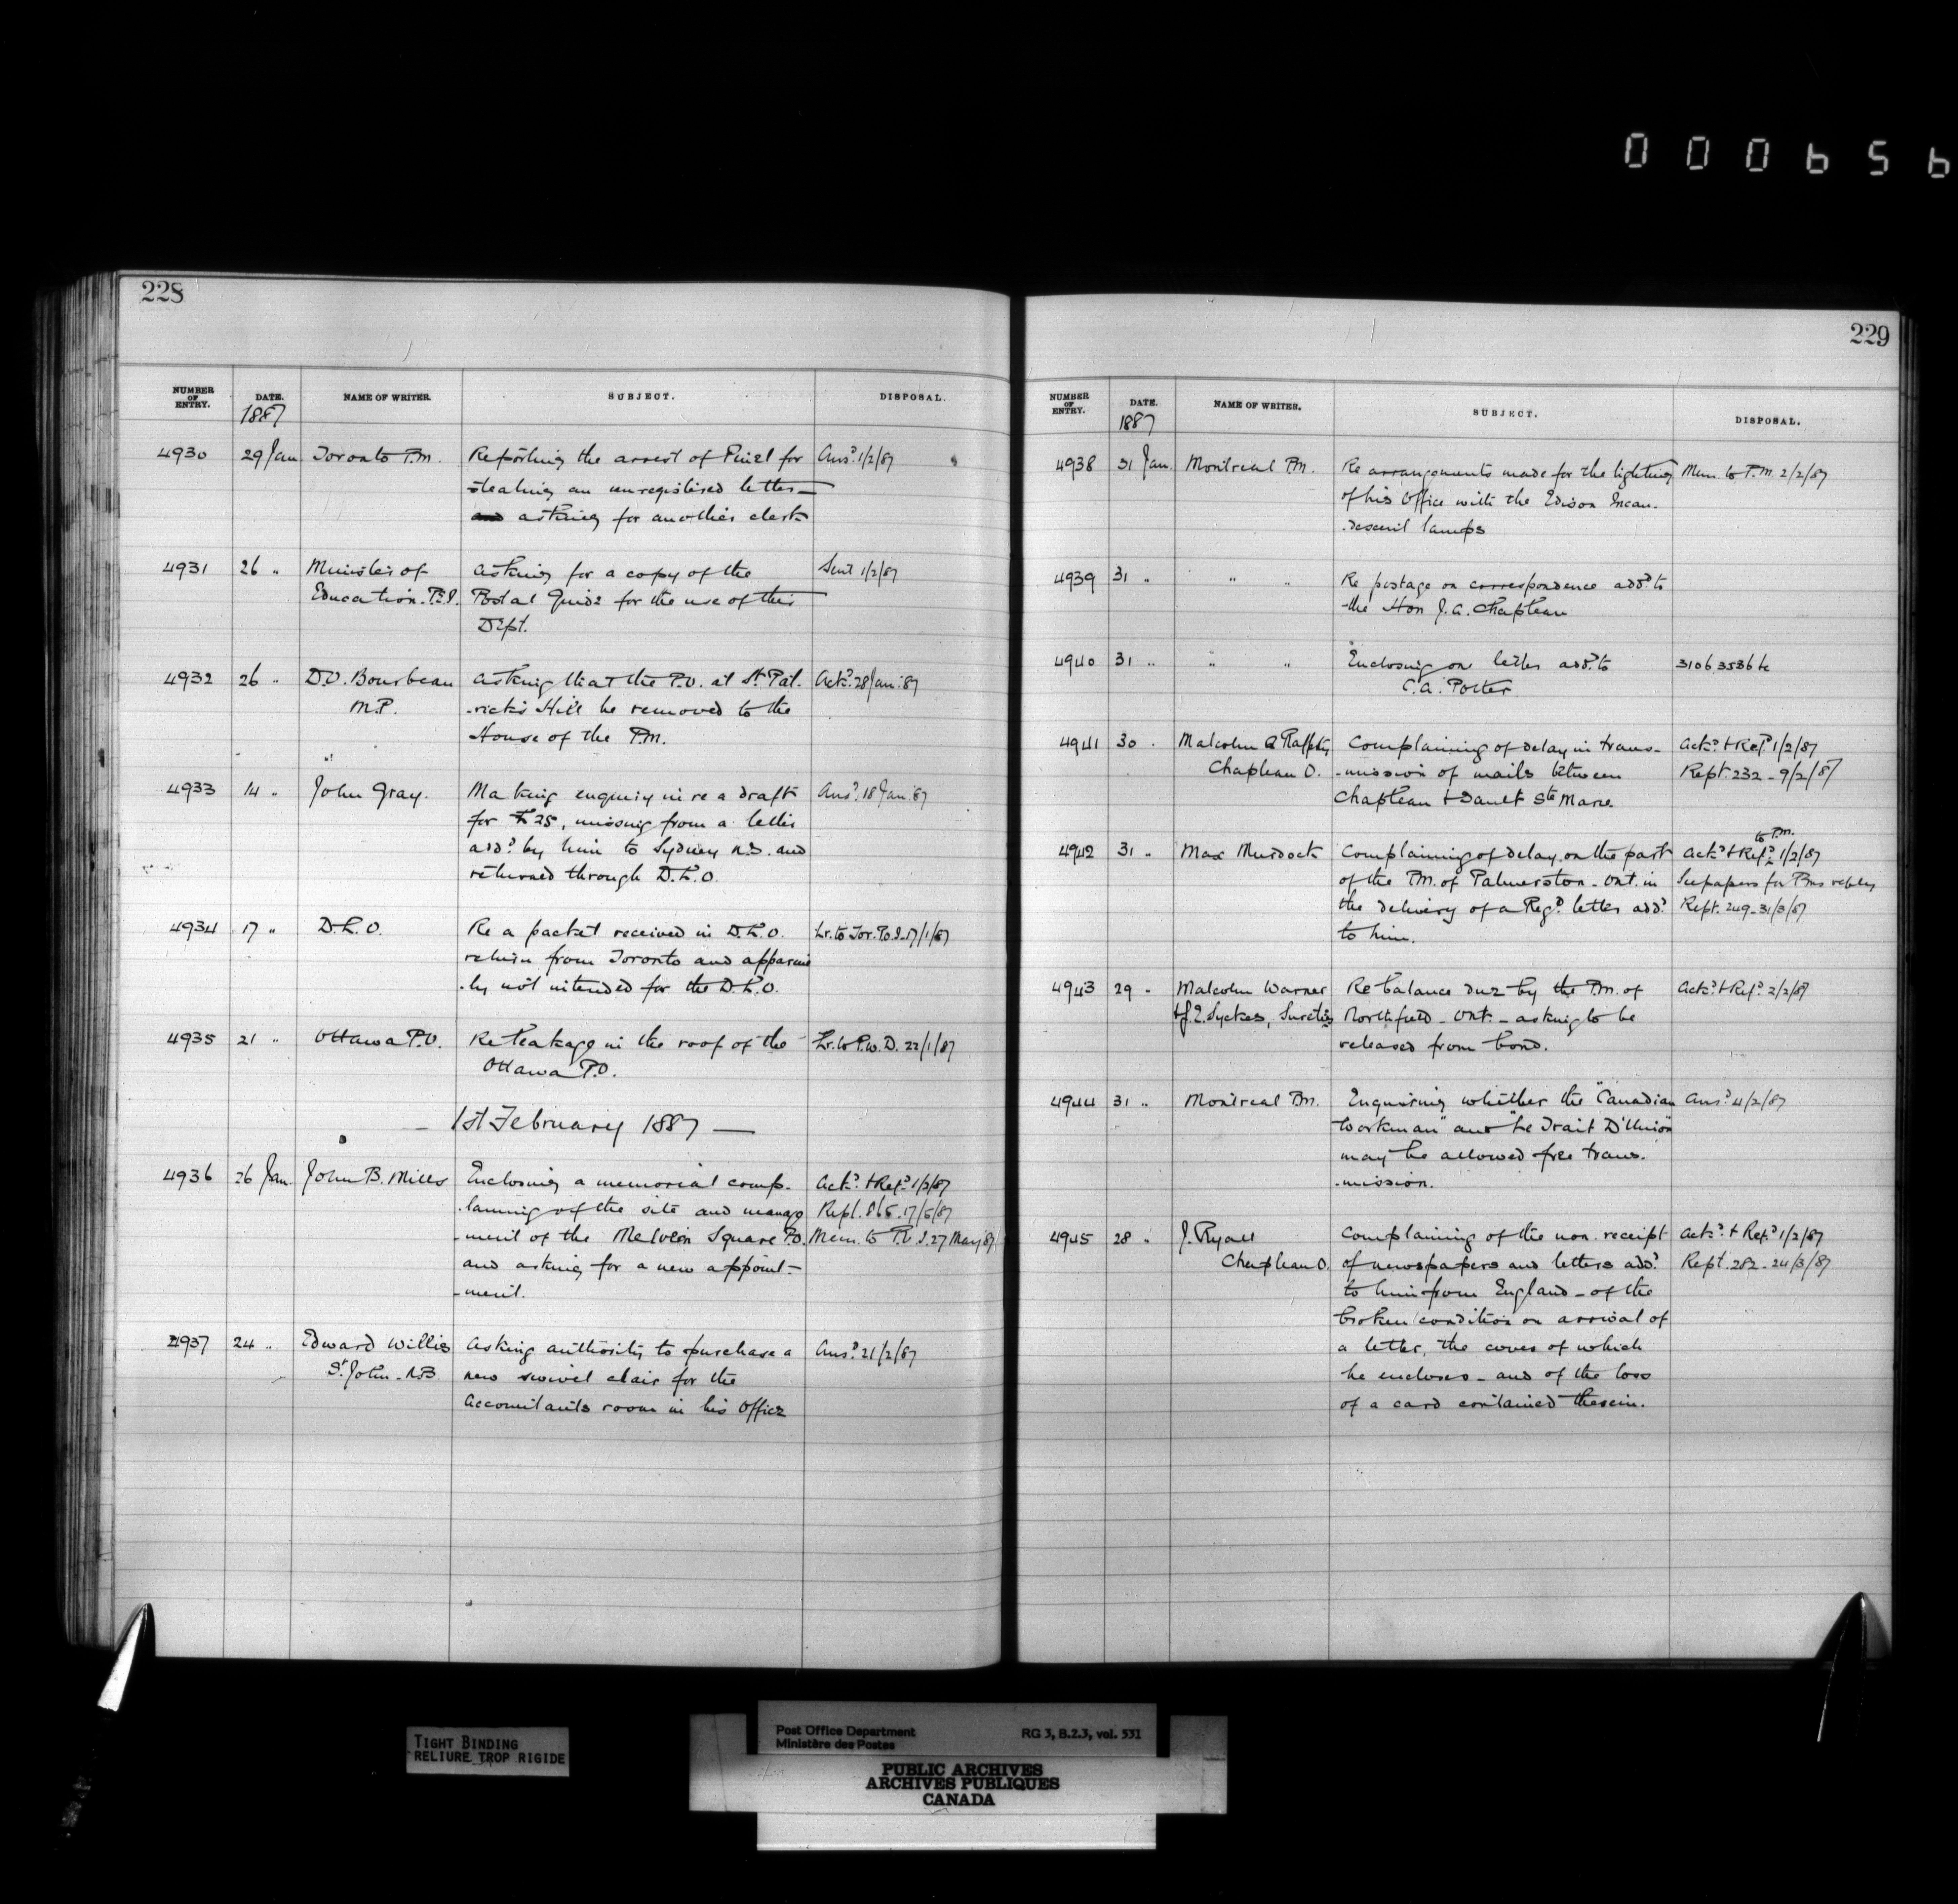 000656
228
NUMBER OF ENTRY. DATE. NAME OF WRITER. SUBJECT. DISPOSAL.
1887
4930 29 Jan Toronto P.M. Reporting the arrest of Pinel for Ansd. 1/2/87
stealing an unregistered letter
and asking for another clerk
4931 26 " Minister of asking for a copy of the Sent 1/2/87
Education. Postal Guide for the use of this
Dept.
4932 26 " D.O. Bourbeau asking that the P.O. at St. Pat. Ackd. 28 Jan. 87
M.P. -rick's Hill be removed to the
House of the P.M.
4933 14 " John Gray. Making enquiry in re a draft Ansd. 18 Jan 87
for £25, missing from a letter
addd. by him to Sydney N.S. and
returned through D.L.O.
4934 17 " D.L.O. Re a packet received in D.L.O. Lr. to Tor. P.O.I. 17/1/87
return from Toronto and apparent
-ly not intended for the D.L.O.
4935 21 " Ottawa P.O. Re leakage in the roof of the Lr. to P.W.D. 22/1/87
Ottawa P.O.
— 1st February 1887 —
4936 26 Jan. John B. Mills Enclosing a memorial comp- Ackd. & Refd. 1/2/87
-laining of the site and manage Rept. 17/5/87
-ment of the Melvern Square P.O. Mem. to P.O.I. 27 May 87
and asking for a new appoint-
-ment.
4937 24 " Edward Willis Asking authority to purchase a Ansd. 21/2/87
St. John. N.B. new swivel chair for the
Accountants room in his Office
229
NUMBER OF ENTRY. DATE. NAME OF WRITER. SUBJECT. DISPOSAL.
1887
4938 31 Jan. Montreal P.M. Re arrangements made for the lighting Mem. to P.M. 2/2/87
of his Office with the Edison Incan-
-descent lamps
4939 31 " " " Re postage on correspondence addd. to
the Hon J.A. Chapleau
4940 31 " " " Enclosing on letter addd. to 3106,3536 tc
C.A. Porter
4941 30 " Malcolm & Rafferty Complaining of delay in trans- Ackd. & Refd. 1/2/87
Chapleau O. -mission of mails between Rept. 232 - 9/2/87
Chapleau & Sault Ste Marie.
to P.M.
4942 31 " Max Murdock Complaining of delay on the part Ackd. & Refd. 1/2/87
of the P.M. of Palmerston - Ont. in See papers for P.M.s reply
the delivery of a Regd. letter addd. Rept. 249 - 31/3/87
to him.
4943 29 " Malcolm Warner Re balance due by the P.M. of Ackd. & Refd. 2/2/87
& J.E. Syckes, Sureties Northfield - Ont. - asking to be
released from bond.
4944 31 " Montreal P.M. Enquiring whether the "Canadian Ansd. 4/2/87
Workman" and "Le Trait D'Union"
may be allowed free trans-
-mission.
4945 28 " J. Ryall Complaining of the non-receipt Ackd. & Refd. 1/2/87
Chapleau O. of newspapers and letters addd. Rept. 282 - 24/3/87
to him from England - of the
broken condition on arrival of
a letter, the cover of which
he encloses - and of the loss
of a card contained therein.
TIGHT BINDING
RELIURE TROP RIGIDE
Post Office Department RG 3, B.2.3, vol. 531
Ministère des Postes
PUBLIC ARCHIVES
ARCHIVES PUBLIQUES
CANADA